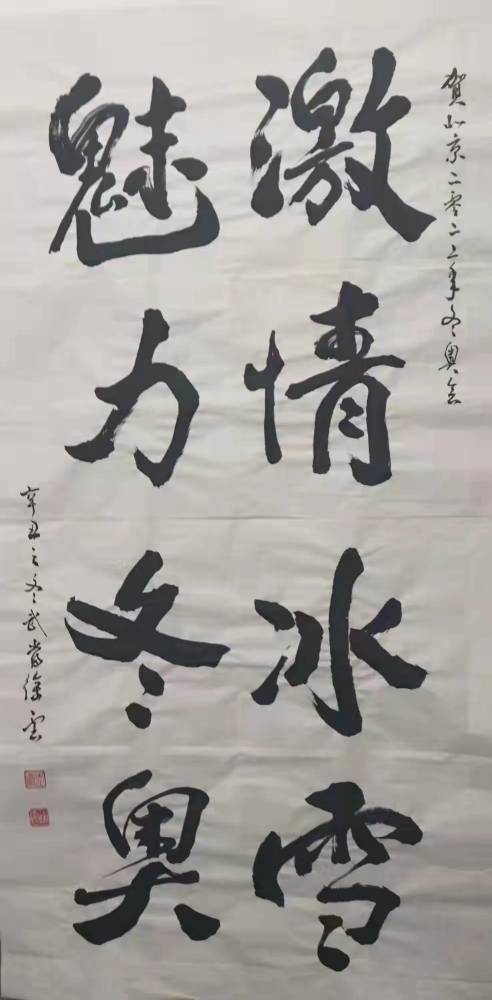 贺北京二零二二年冬奥会
激情冰雪
魅力冬奥
辛丑之冬武当徐云